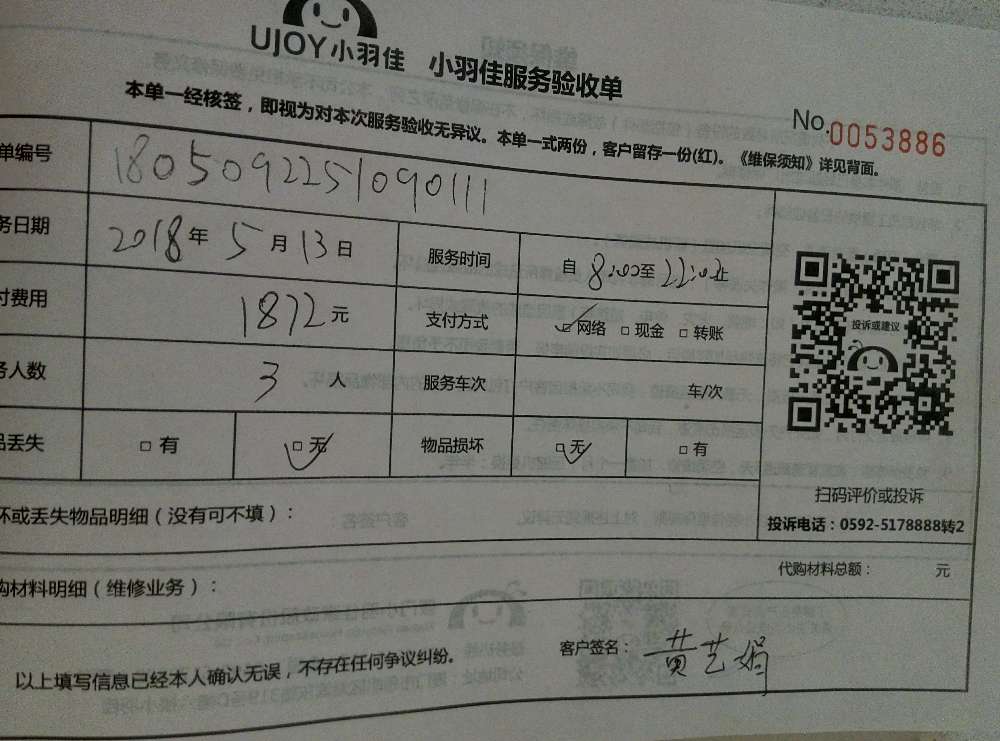 UJOY小羽佳 小羽佳服务验收单
本单一经核签，即视为对本次服务验收无异议。本单一式两份，客户留存一份(红)。《维保须知》详见背面。
No.0053886
单编号 1805092251090111
务日期 2018年5月13日 服务时间 自8:00至22:00止
付费用 1872元 支付方式 网络 现金 转账
务人数 3人 服务车次 车/次
品丢失 有 无 物品损坏 无 有
投诉或建议
扫码评价或投诉
投诉电话：0592-5178888转2
坏或丢失物品明细（没有可不填）：
代购材料总额： 元
购材料明细（维修业务）：
客户签名：黄艺娟
以上填写信息已经本人确认无误，不存在任何争议纠纷。